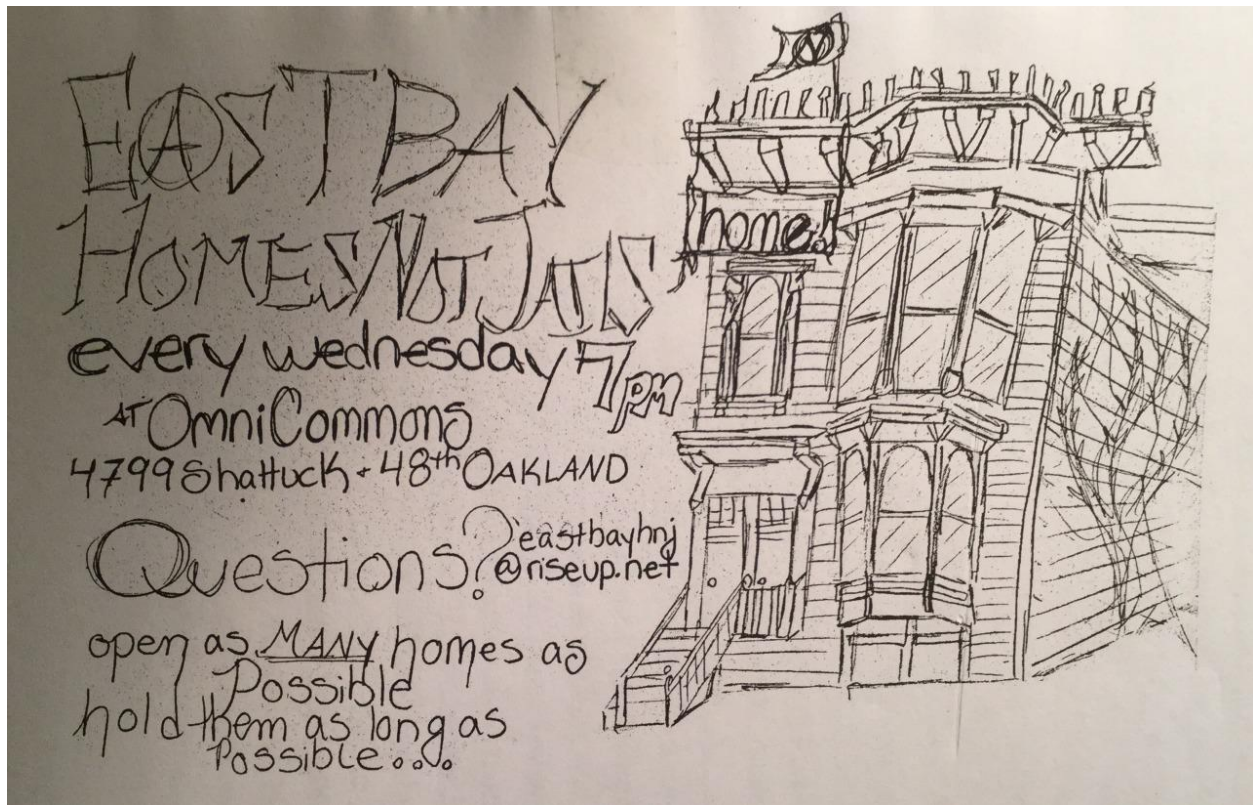 EAST BAY
HOMES NOT JAILS
every wednesday 7pm
AT OmniCommons
4799 Shattuck + 48th OAKLAND
Questions? eastbayhnj
@riseup.net
open as MANY homes as
Possible
hold them as long as
Possible...
home!